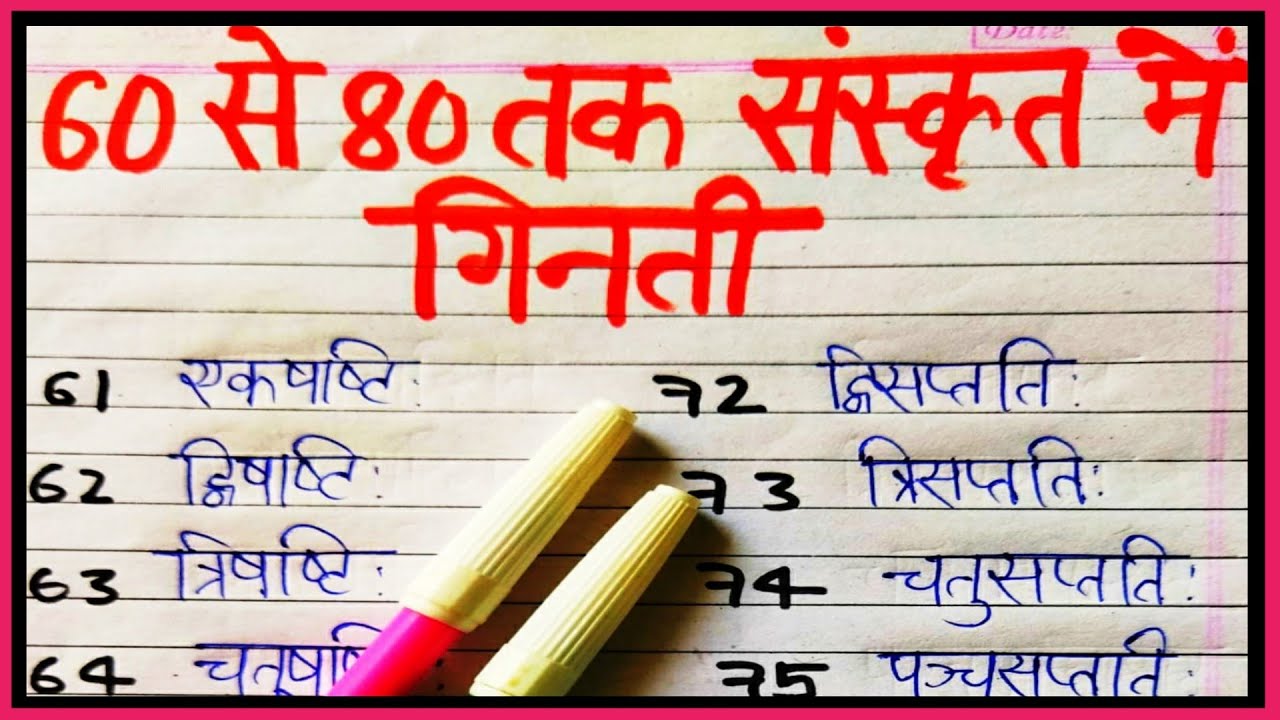 Date:
60 से 80 तक संस्कृत में
गिनती
61 एकषष्टिः
62 द्विषष्टिः
63 त्रिषष्टिः
64
72 द्विसप्ततिः
73 त्रिसप्ततिः
74 चतुसप्ततिः
75 पञ्चसप्ततिः